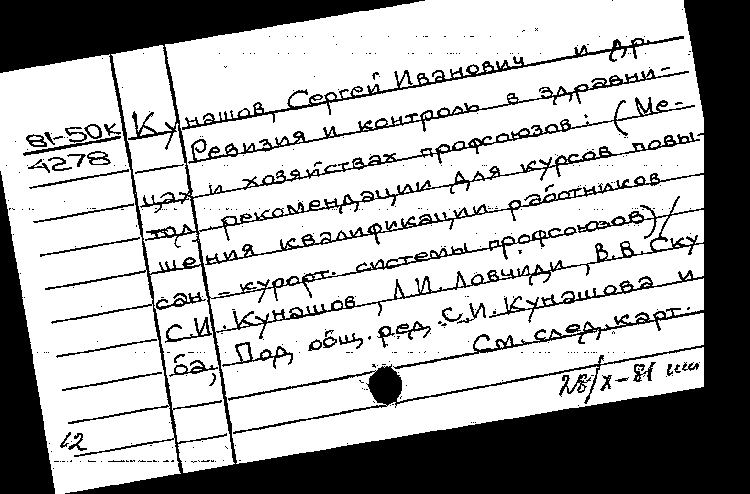 81-50к
4278
Кунашов, Сергей Иванович и др.
Ревизия и контроль в здравни-
цах и хозяйствах профсоюзов: (Ме-
тод. рекомендации для курсов повы-
шения квалификации работников
сан.-курорт. системы профсоюзов) /
С.И. Кунашов, Л.И. Ловчиди, В.В. Ску
ба; Под общ. ред. С.И. Кунашова и
См. след. карт.
28/X-81
12